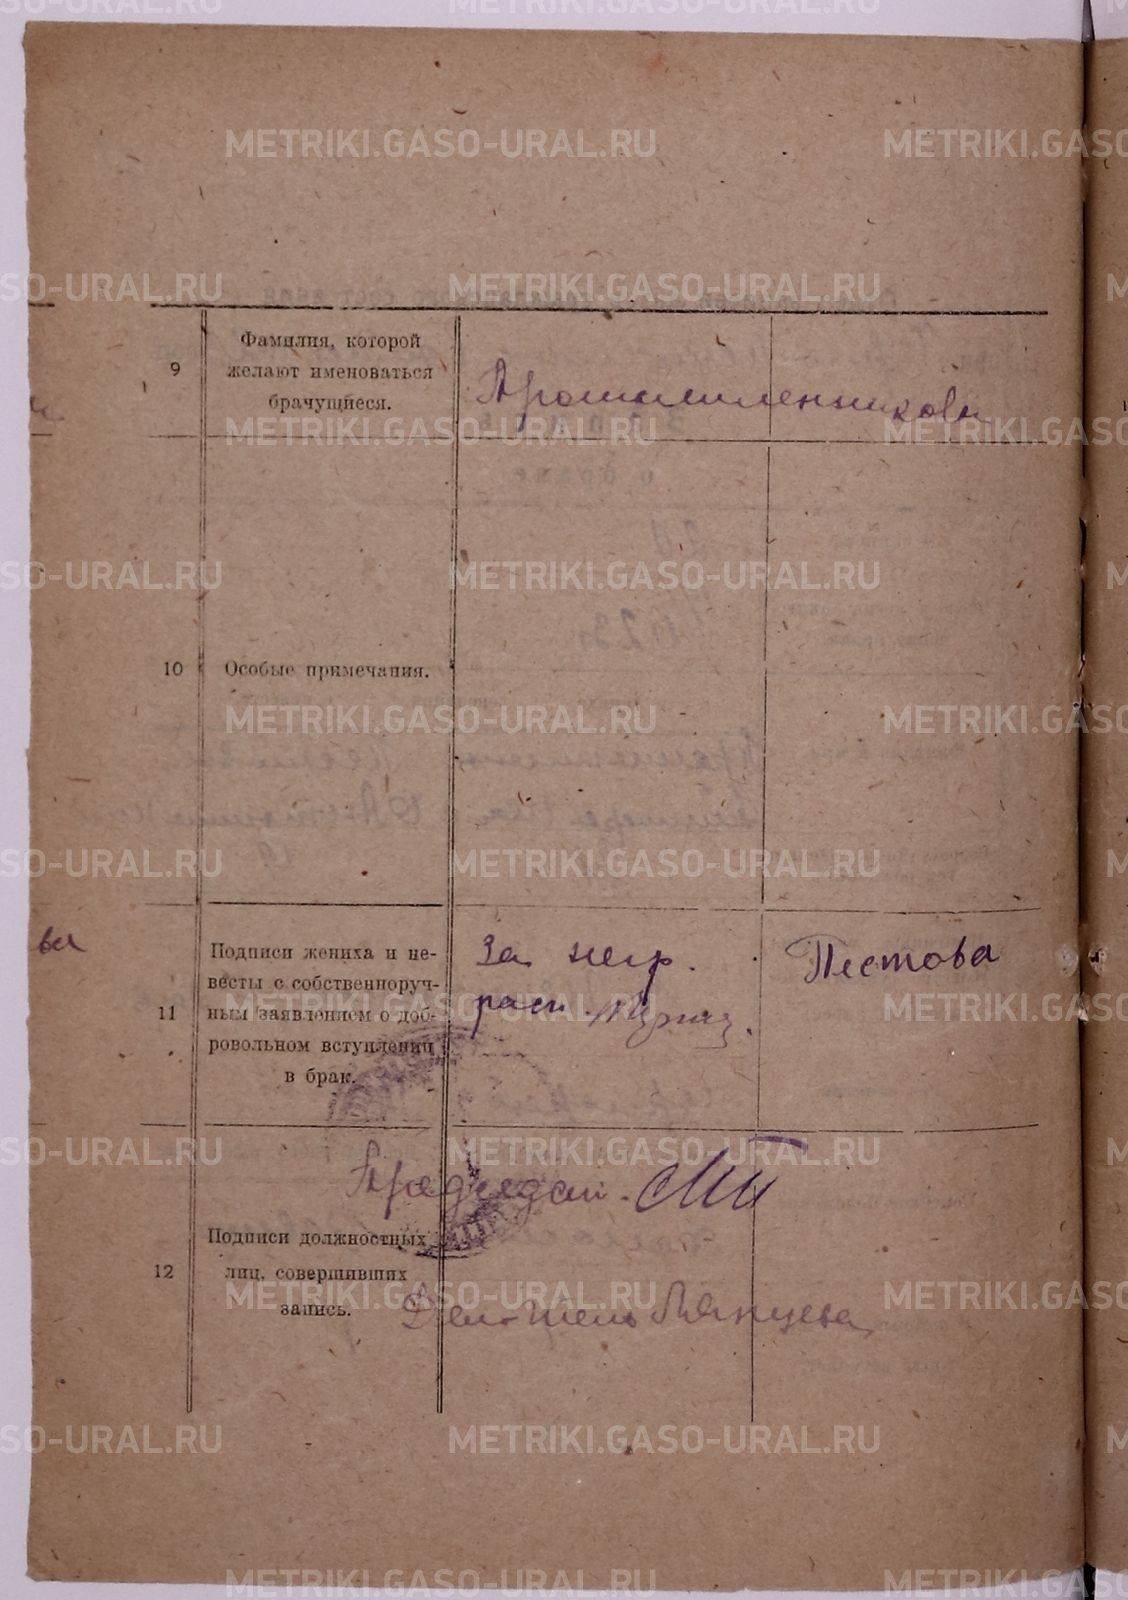 9
Фамилия, которой
желают именоваться
брачущиеся.
Промышленниковы
10
Особые примечания.
11
Подписи жениха и не-
весты с собственноруч-
ным заявлением о доб-
ровольном вступлении
в брак.
За негр.
расп.
Пестова
12
Подписи должностных
лиц, совершивших
запись.
Председат.
Дел-тель
ва
METRIKI.GASO-URAL.RU